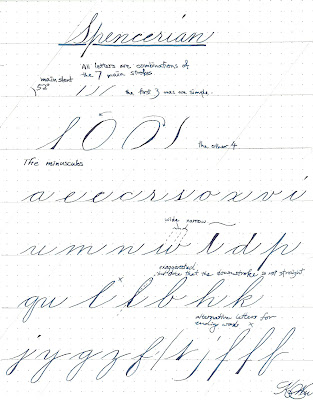 Spencerian
All letters are combinations of
the 7 main strokes
main slant
52°
the first 3 ones are simple.
The other 4
The minuscules
a e c c r s o x v i
wide narrow
u m n w t d p
exaggerated,
notice that the downstroke is not straight
qu l l b h k
alternative letters for
ending words x
j y g z f j f f f